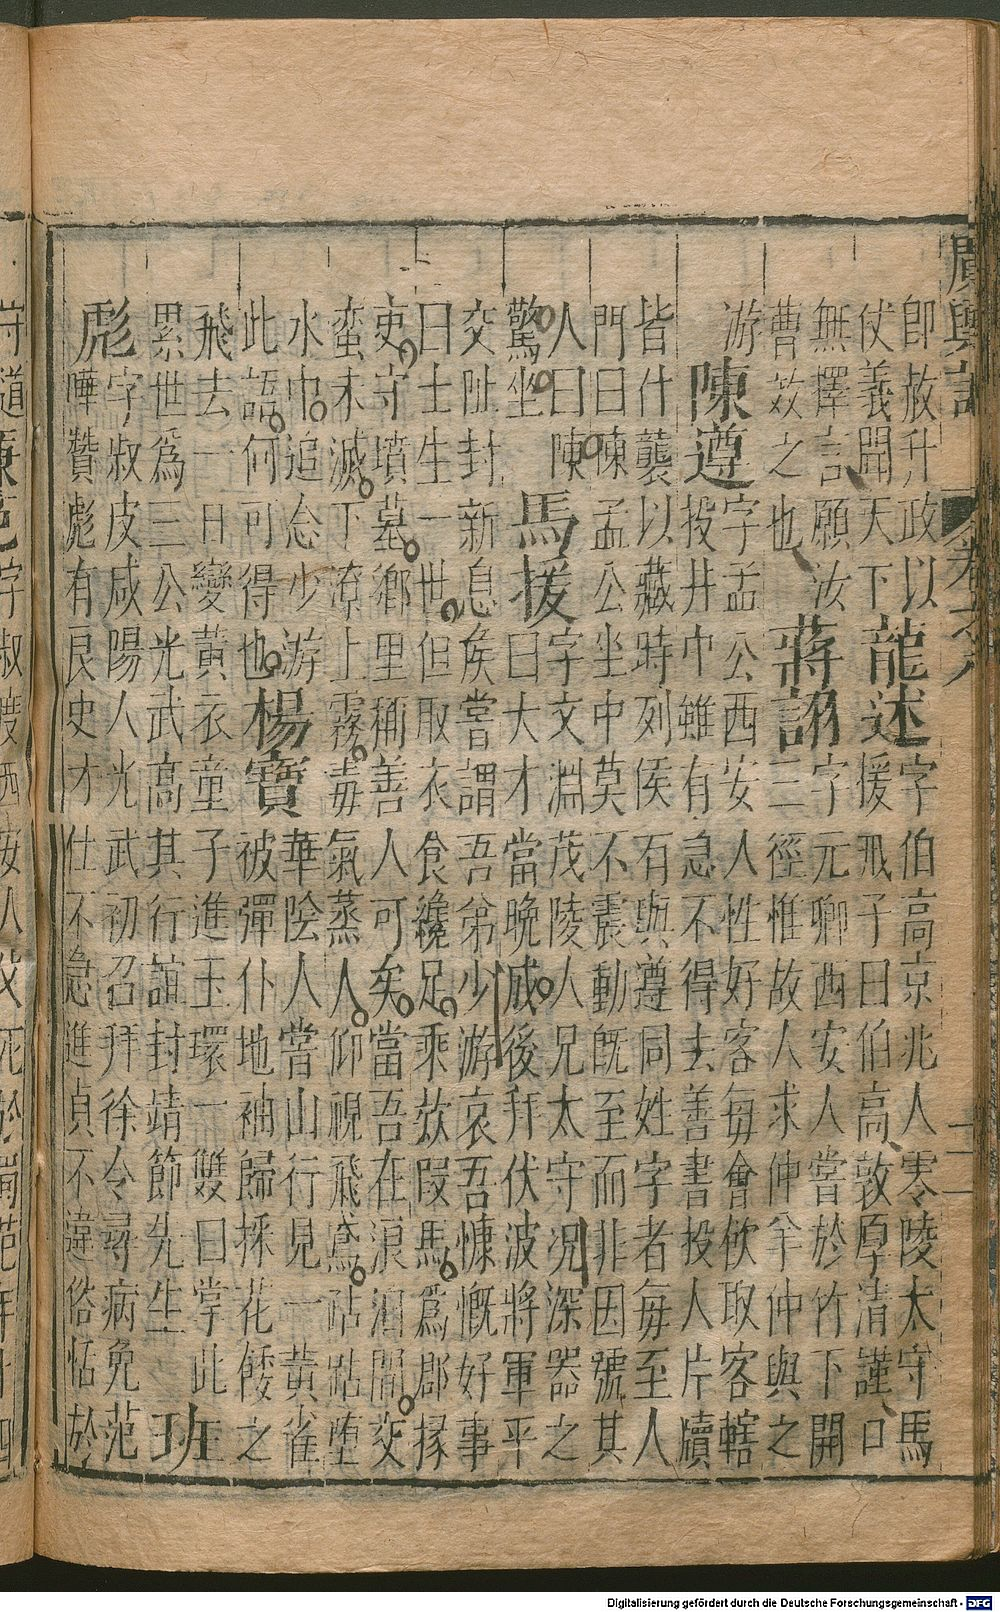 廣輿記
卷六
十一
即赦升政以
仗義開天下
龍述
字伯高京兆人零陵太守馬
援戒子曰伯高敦厚清謹口
無擇言願汝
曹效之也
蔣詡
字元卿西安人嘗於竹下開
三徑惟故人求仲羊仲與之
游
陳遵
字孟公西安人性好客每會飲取客轄
投井中雖有急不得去善書投人片牘
皆什襲以藏時列侯有與遵同姓字者每至人
門曰陳孟公坐中莫不震動旣至而非因號其
人曰陳
驚坐
馬援
字文淵茂陵人兄太守况深器之
曰大才當晩成後拜伏波將軍平
交阯封新息矦嘗謂吾弟少游哀吾慷慨好事
曰士生一世但取衣食纔足乘欵段馬爲郡掾
吏守墳墓鄉里稱善人可矣當吾在浪泊間交
蛮未滅下潦上霧毒氣蒸人仰視飛鳶跕跕堕
水中追念少游
此語何可得也
楊寶
華陰人嘗山行見一黃雀
被彈仆地袖歸採花餧之
飛去一日變黃衣童子進玉環一雙曰掌此
累世爲三公光武高其行諡封靖節先生
班
彪
字叔皮咸陽人光武初召拜徐令尋病免范
曄贊彪有良史才仕不急進貞不違俗恬於
Digitalisierung gefördert durch die Deutsche Forschungsgemeinschaft - DFG